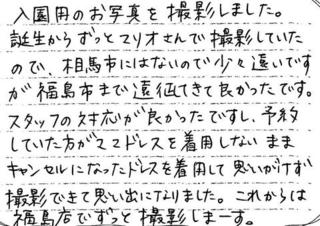 入園用のお写真を撮影しました。
誕生からずっとマリオさんで撮影していた
ので、相馬市にはないので少々遠いです
が福島市まで遠征してきて良かったです。
スタッフの対応が良かったですし、予約
していた方がママドレスを着用しないまま
キャンセルになったドレスを着用して思いがけず
撮影できて思い出になりました。これからは
福島店でずっと撮影しまーす。